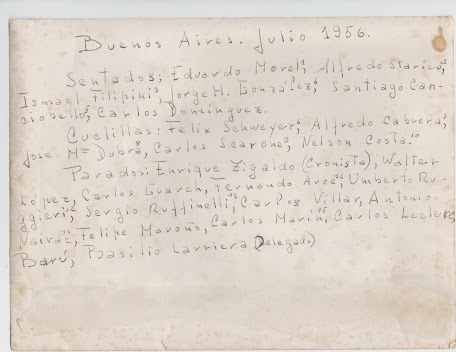 Buenos Aires. Julio 1956.
Sentados; Eduardo Morel¹, Alfredo Starico,²
Ismael Filipini³, Jorge H. González⁴, Santiago Can-
ciobello⁵, Carlos Dominguez.
Cuclillas: Felix Schweyer⁶, Alfredo Cabrera,⁷
Jose Mª Dubra⁸, Carlos Scarone⁹, Nelson Costa.¹⁰
Parados: Enrique Zigaldo (Cronista), Walter
Lopez, Carlos Guarch, Fernando Arce, Umberto Ru-
ggieri, Sergio Ruffinelli, Carlos Villar, Antonio
Felipe Maroño, Carlos Marin, Carlos Leclerc,
Barú, Basilio Larriera (Delegado)